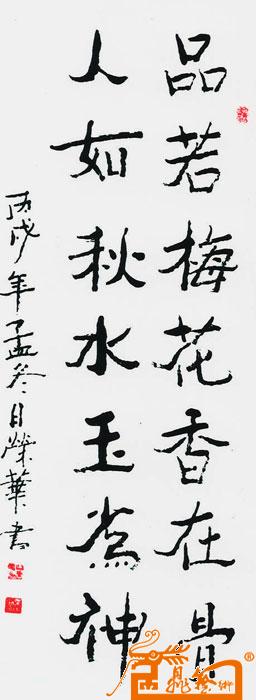 品若梅花香在骨
人如秋水玉為神
丙戌年孟冬月榮華書